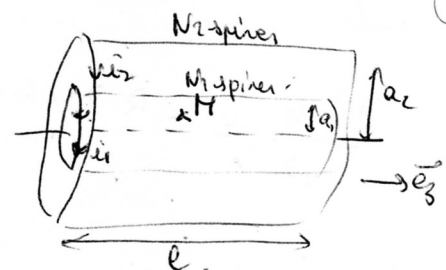 N2 spires
i2
N1 spires
M
a1
a2
i1
e3
l